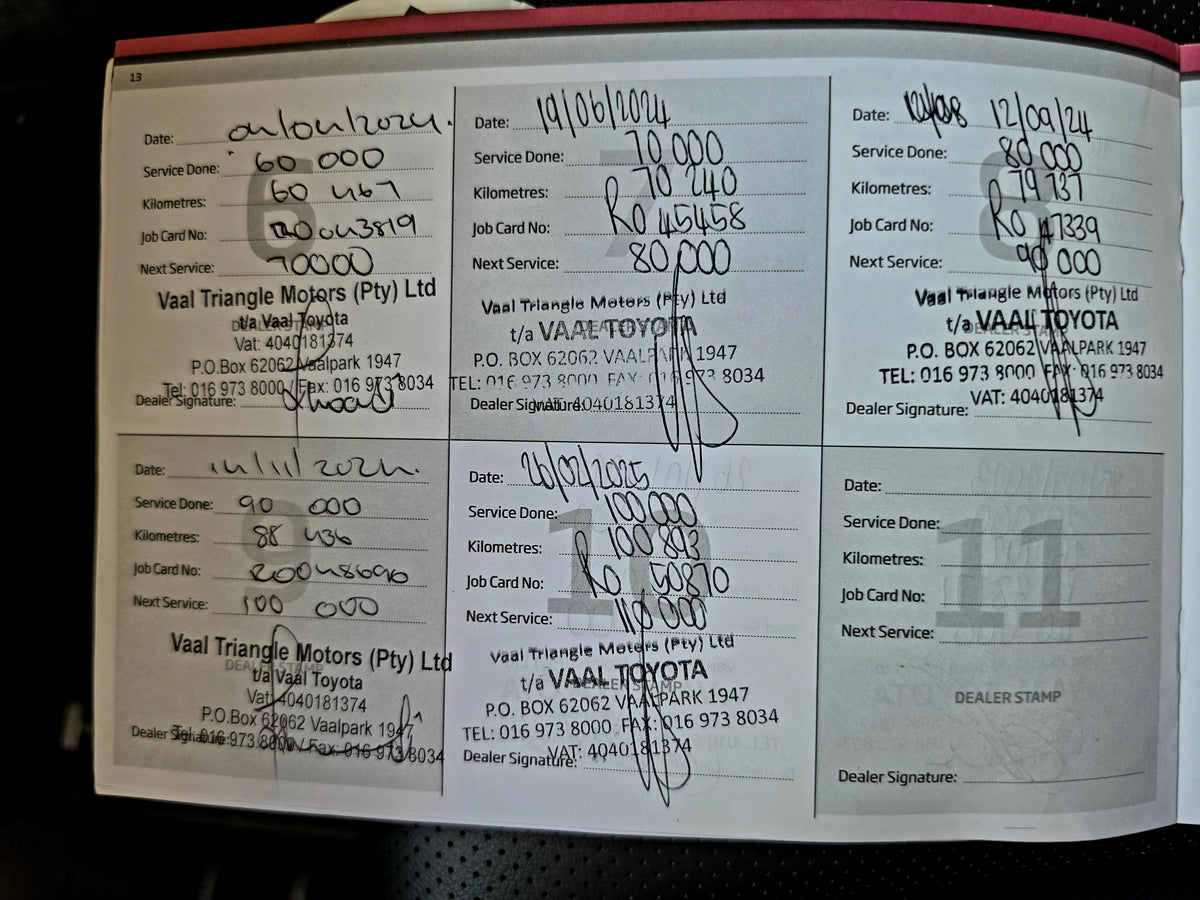 13
Date: 04/04/2024.
Service Done: 60 000
Kilometres: 60 467
Job Card No: R0043819
Next Service: 70000
6
Vaal Triangle Motors (Pty) Ltd
t/a Vaal Toyota
DEALER STAMP
Vat: 4040181374
P.O.Box 62062 Vaalpark 1947
Tel: 016 973 8000 / Fax: 016 973 8034
Dealer Signature:
Date: 19/06/2024
Service Done: 70 000
Kilometres: 70 240
Job Card No: Ro 45458
Next Service: 80,000
7
Vaal Triangle Motors (Pty) Ltd
t/a VAAL TOYOTA
DEALER STAMP
P.O. BOX 62062 VAALPARK 1947
TEL: 016 973 8000 FAX: 016 973 8034
VAT: 4040181374
Dealer Signature:
Date: 12/09/24
Service Done: 80 000
Kilometres: 79 737
Job Card No: Ro 47339
Next Service: 90 000
8
Vaal Triangle Motors (Pty) Ltd
t/a VAAL TOYOTA
DEALER STAMP
P.O. BOX 62062 VAALPARK 1947
TEL: 016 973 8000 FAX: 016 973 8034
VAT: 4040181374
Dealer Signature:
Date: 14/11/2024.
Service Done: 90 000
Kilometres: 88 436
Job Card No: R0048696
Next Service: 100 000
9
Vaal Triangle Motors (Pty) Ltd
DEALER STAMP
t/a Vaal Toyota
Vat: 4040181374
P.O.Box 62062 Vaalpark 1947
Tel: 016 973 8000 / Fax: 016 973 8034
Dealer Signature:
Date: 26/02/2025
Service Done: 100 000
Kilometres: 100 893
Job Card No: Ro 50870
Next Service: 110 000
10
Vaal Triangle Motors (Pty) Ltd
t/a VAAL TOYOTA
DEALER STAMP
P.O. BOX 62062 VAALPARK 1947
TEL: 016 973 8000 FAX: 016 973 8034
VAT: 4040181374
Dealer Signature:
Date:
Service Done:
Kilometres:
Job Card No:
Next Service:
11
DEALER STAMP
Dealer Signature: